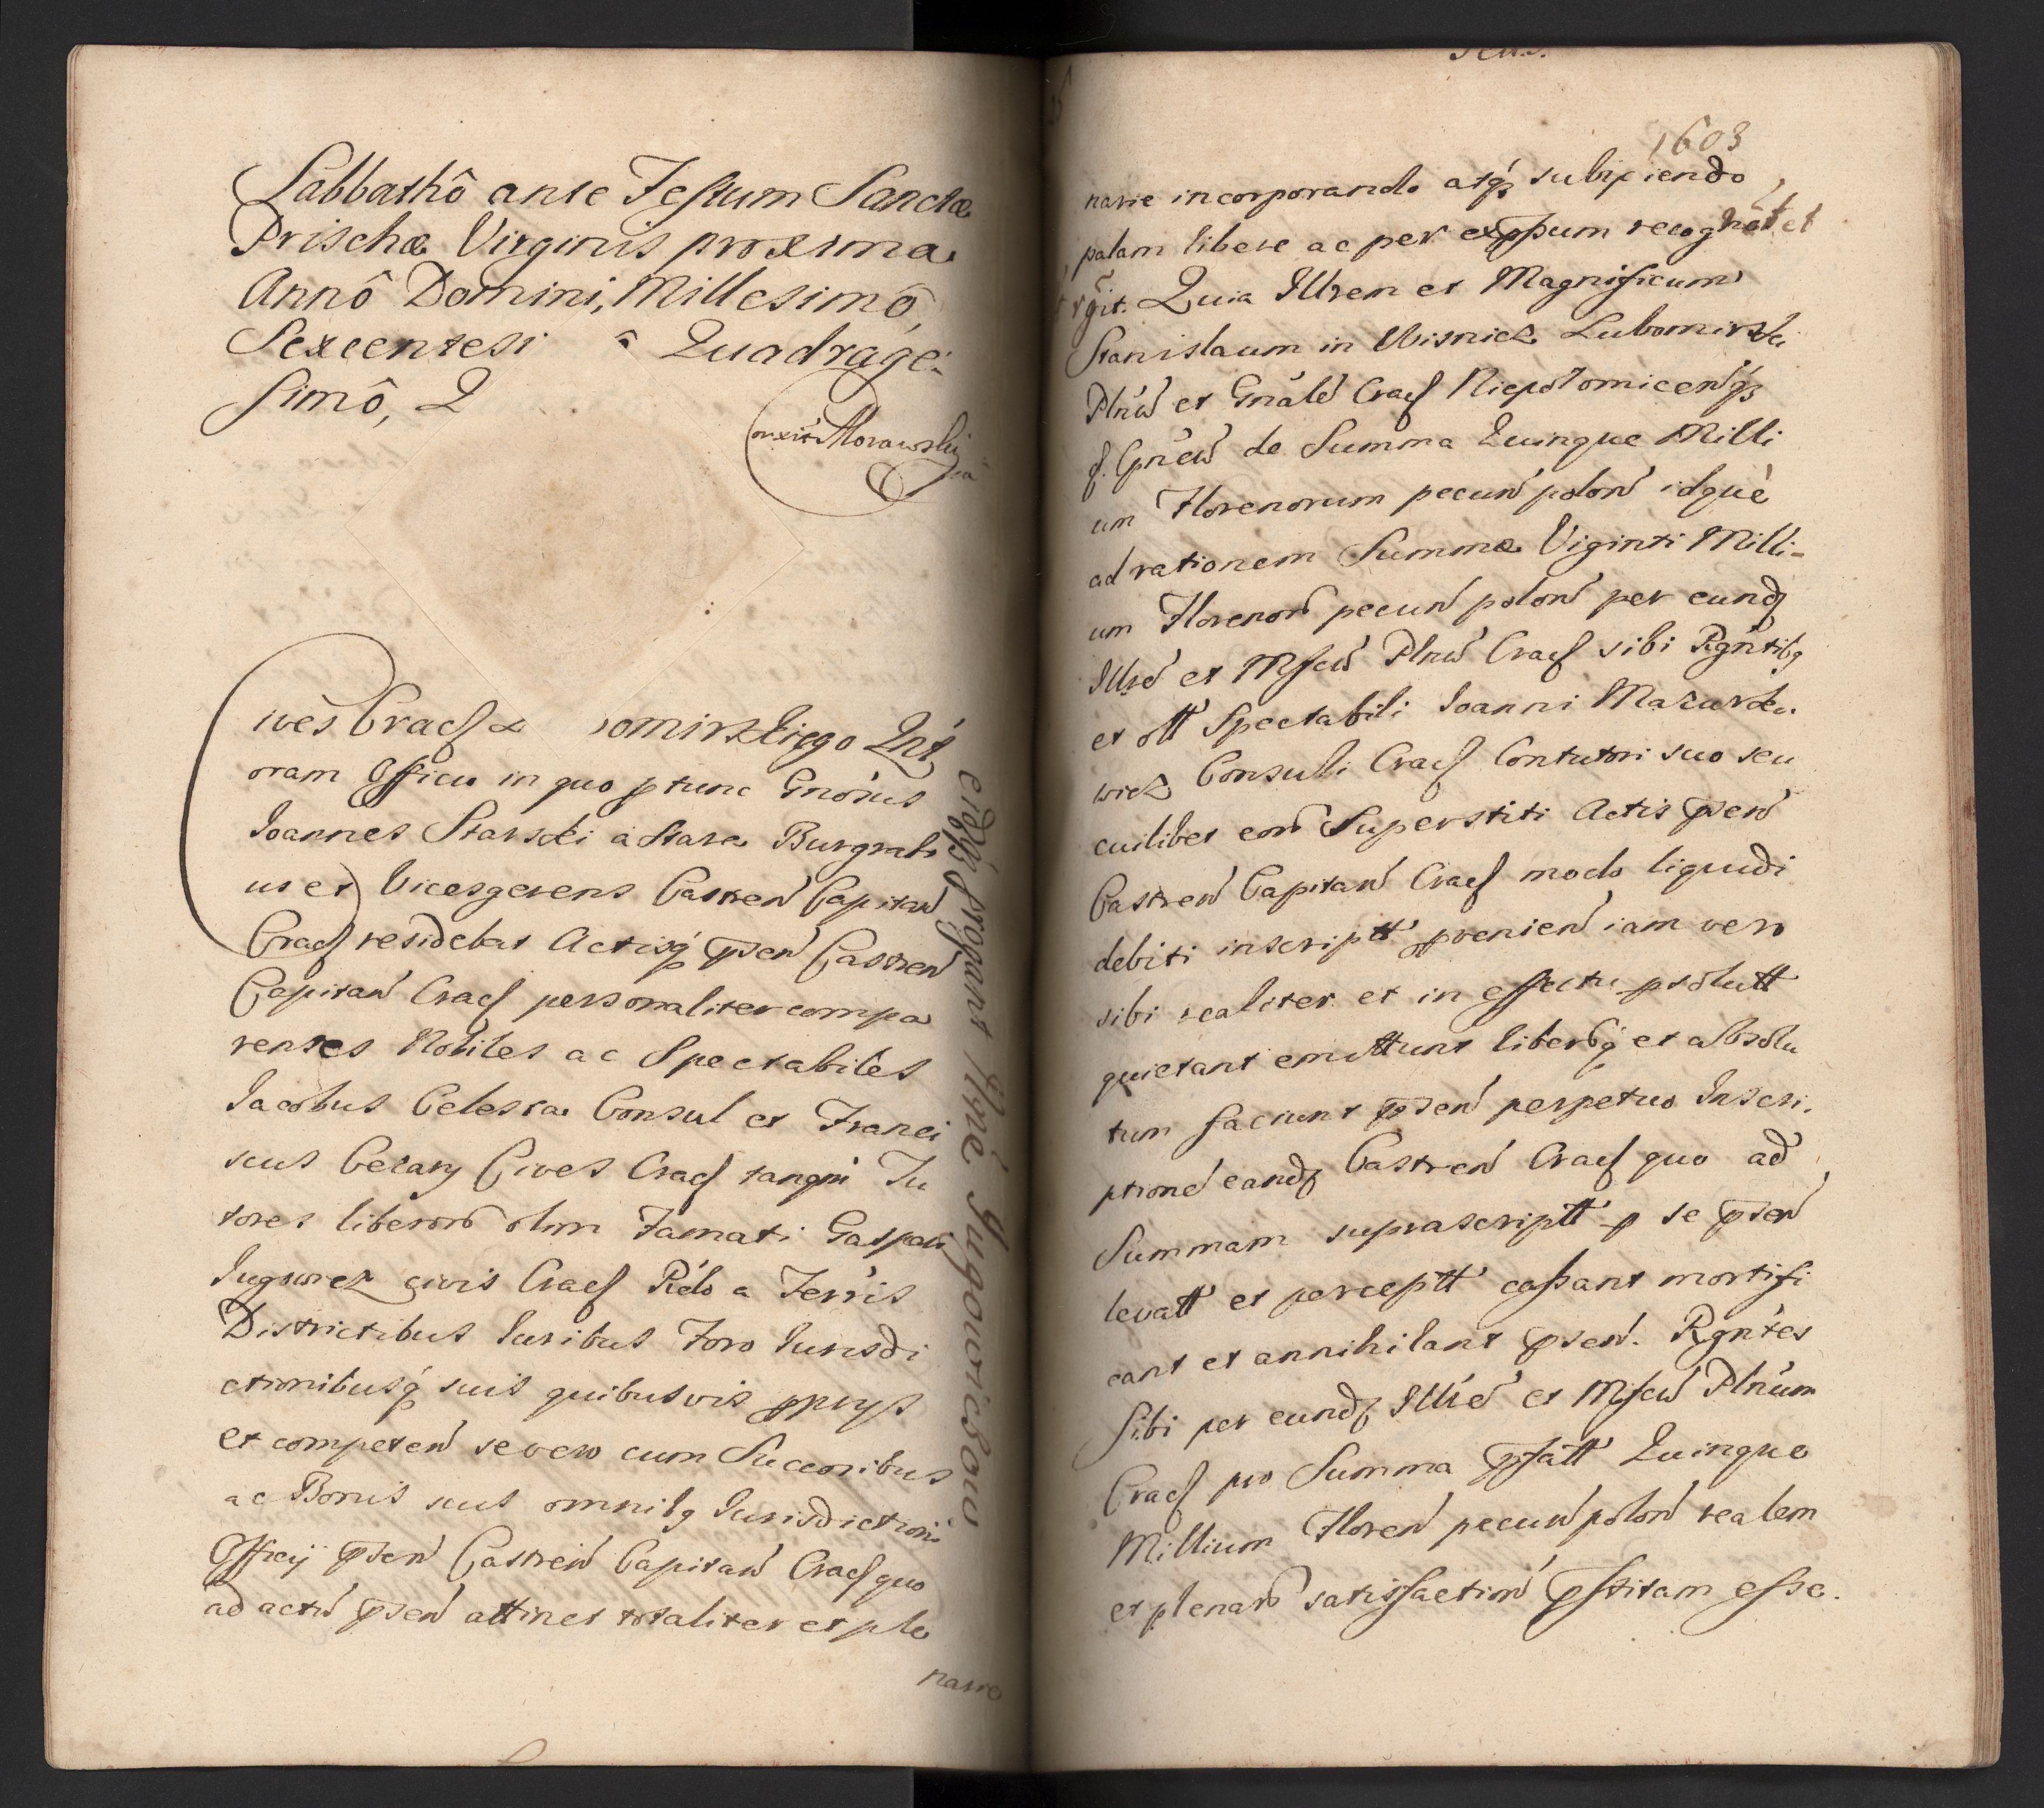 Sabbathô ante Festum Sanctæ
Prischæ Virginis proxima
Annô Domini, Millesimô,
Sexcentesi ô Quadrage-
simô, Q
Morawski
ives Cracẽ omirskiego Quiẽt
oram Officio in quo ꝑ tunc Gnõsus
Joannes Starski à Stara Burgrabi
us et Vicesgerens Castreñ Capitañ
Cracẽ residebat Actisq̃ p̃señ Castreñ
Capitañ Cracẽ personaliter compa
rentes Nobiles ac Spectabiles
Jacobus Celesta Consul et Franci
scus Cezary Cives Cracẽ tanq̃m Tu
tores liberorũ olim Famati Gaspari
Jugowicz civis Cracẽ Rc̃to a Terris
Districtibus Juribus Foro Jurisdi
ctionibusq̃ suis quibusvis ꝓprijs
et competeñ se vero cum Succoribus
ac Bonis suis omnibq Jurisdictioni
Officij p̃señ Castreñ Capitañ Cracẽ quo
ad actũ p̃señ attinet totaliter et ple
narie
1603
narie incorporando atq̃ subijciendo,
palam libere ac per exp̃ssum recognõt et
Quia Illrem et Magnificum
Stanislaum in Wisnicz Lubomirski
Pltñũ et Gnãlẽ Cracẽ Niepolomiceñq̃
Gñẽũ de Summa Quinque Milli
um Florenorum pecuñ poloñ idque
ad rationem Summæ Viginti Milli-
um Florenorũ pecuñ poloñ per eundẽ
Illrẽ et Mfcũ Pltñũ Cracẽ sibi Rgñtibq
et oltt Spectabili Joanni Mazurko
wicz Consuli Cracẽ Contutori suo seu
cuilibet eorũ Superstiti Actis p̃señ
Castreñ Capitañ Cracẽ modo liquidi
debiti inscriptt ꝓvenieñ iam vero
sibi realiter et in effectu ꝑsolutt
quietant emittunt liberũq̃ et absolu
tum faciunt p̃señ perpetuo Inscri-
ptionẽ eandẽ Castreñ Cracẽ quo ad
Summam suprascriptt ꝑ se p̃señ
levatt et perceptt cassant mortifi
cant et annihilant p̃señ. Rgñtes
Sibi per eundẽ Illrẽ et Mfcũ Pltñum
Cracẽ pro Summa p̃fatt Quinque
Millium Floreñ pecuñ poloñ realem
et plenarũ satisfactionẽ p̃stitam esse.